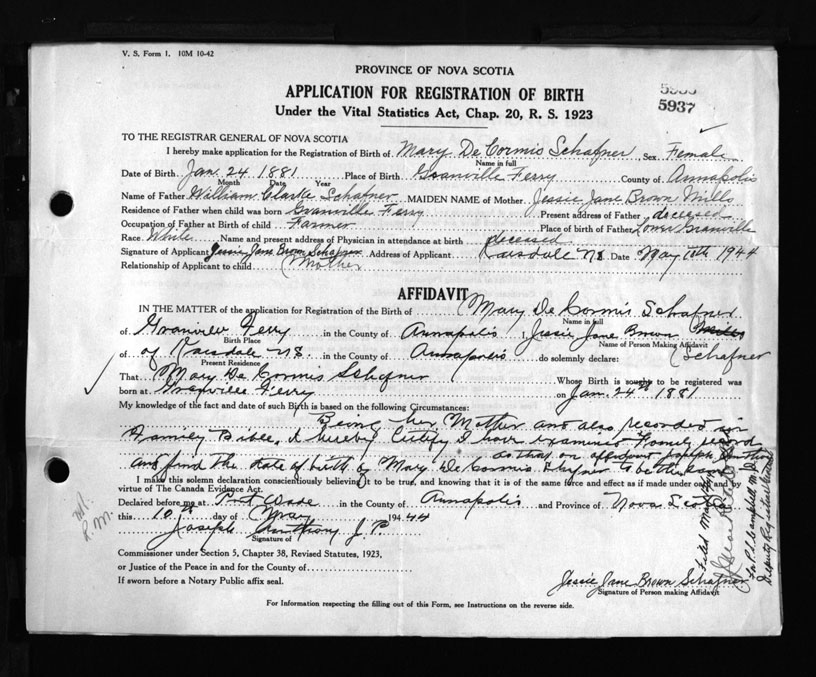 V. S. Form 1. 10M 10-42
PROVINCE OF NOVA SCOTIA
APPLICATION FOR REGISTRATION OF BIRTH
5937
Under the Vital Statistics Act, Chap. 20, R. S. 1923
TO THE REGISTRAR GENERAL OF NOVA SCOTIA
I hereby make application for the Registration of Birth of Mary De Cormis Schafner, Sex Female
Name in full
Date of Birth Jan. 24 1881 Place of Birth Granville Ferry County of Annapolis
Month Date Year
Name of Father William Clarke Schafner MAIDEN NAME of Mother Jessie Jane Brown Mills
Residence of Father when child was born Granville Ferry Present address of Father deceased
Occupation of Father at Birth of child Farmer Place of birth of Father Lower Granville
Race White Name and present address of Physician in attendance at birth deceased
Signature of Applicant Jessie Jane Brown Schafner Address of Applicant Karsdale NS. Date May 10th 1944
Relationship of Applicant to child (Mother
AFFIDAVIT
IN THE MATTER of the application for Registration of the Birth of Mary De Cormis Schafner
Name in full
of Granville Ferry in the County of Annapolis I, Jessie Jane Brown Mills
Birth Place Name of Person Making Affidavit
of of Karsdale NS. in the County of Annapolis do solemnly declare: (Schafner
Present Residence
That Mary De Cormis Schafner Whose Birth is sought to be registered was
born at Granville Ferry on Jan. 24th 1881
My knowledge of the fact and date of such Birth is based on the following Circumstances:
Being her Mother and also recorded in
Family Bible. I hereby Certify I have examined Family record
and find the date of birth of Mary De Cormis Schafner to be the same
as that on affidavit Joseph Anthony
I make this solemn declaration conscientiously believing it to be true, and knowing that it is of the same force and effect as if made under oath and by
virtue of The Canada Evidence Act.
Declared before me at Port Wade in the County of Annapolis and Province of Nova Scotia
this 10th day of May 1944
Joseph Anthony J. P.
Signature of
Commissioner under Section 5, Chapter 38, Revised Statutes, 1923,
or Justice of the Peace in and for the County of
If sworn before a Notary Public affix seal.
Jessie Jane Brown Schafner
Signature of Person making Affidavit
For Information respecting the filling out of this Form, see Instructions on the reverse side.
Filed May
for P.S. Campbell M.D.
Deputy Registrar General